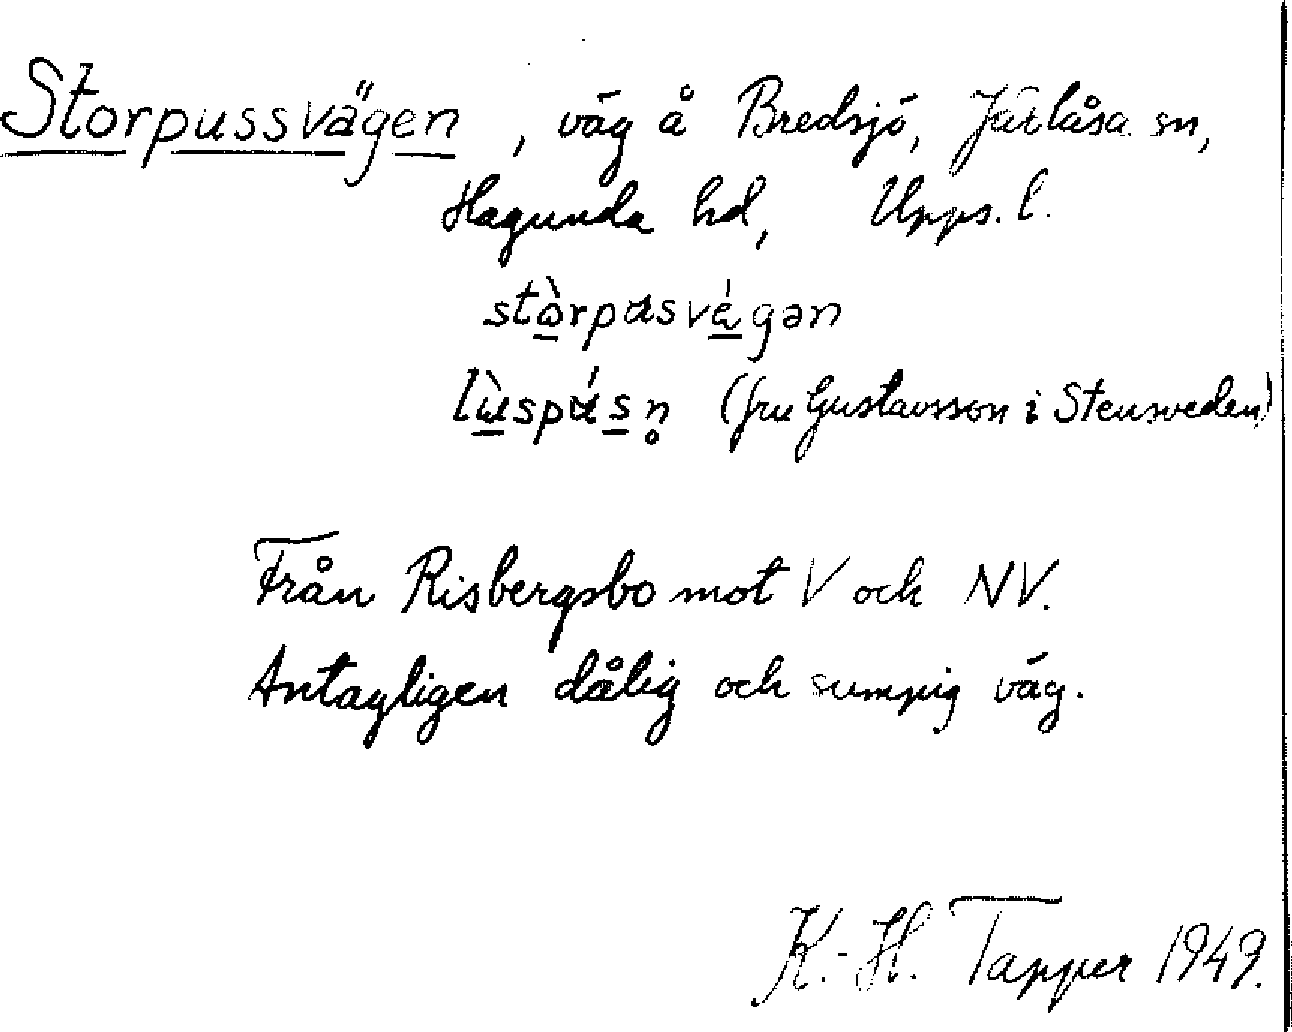 Storpussvägen, väg å Bredsjö, Järlåsa sn,
Hagunda hd, Upps. l.
stòrpusvǻgən
lùspúsn̥ (fru Gustavsson i Stensveden)
Från Risbergsbo mot V och NV.
Antagligen dålig och sumpig väg.
K.-H. Tapper 1949.